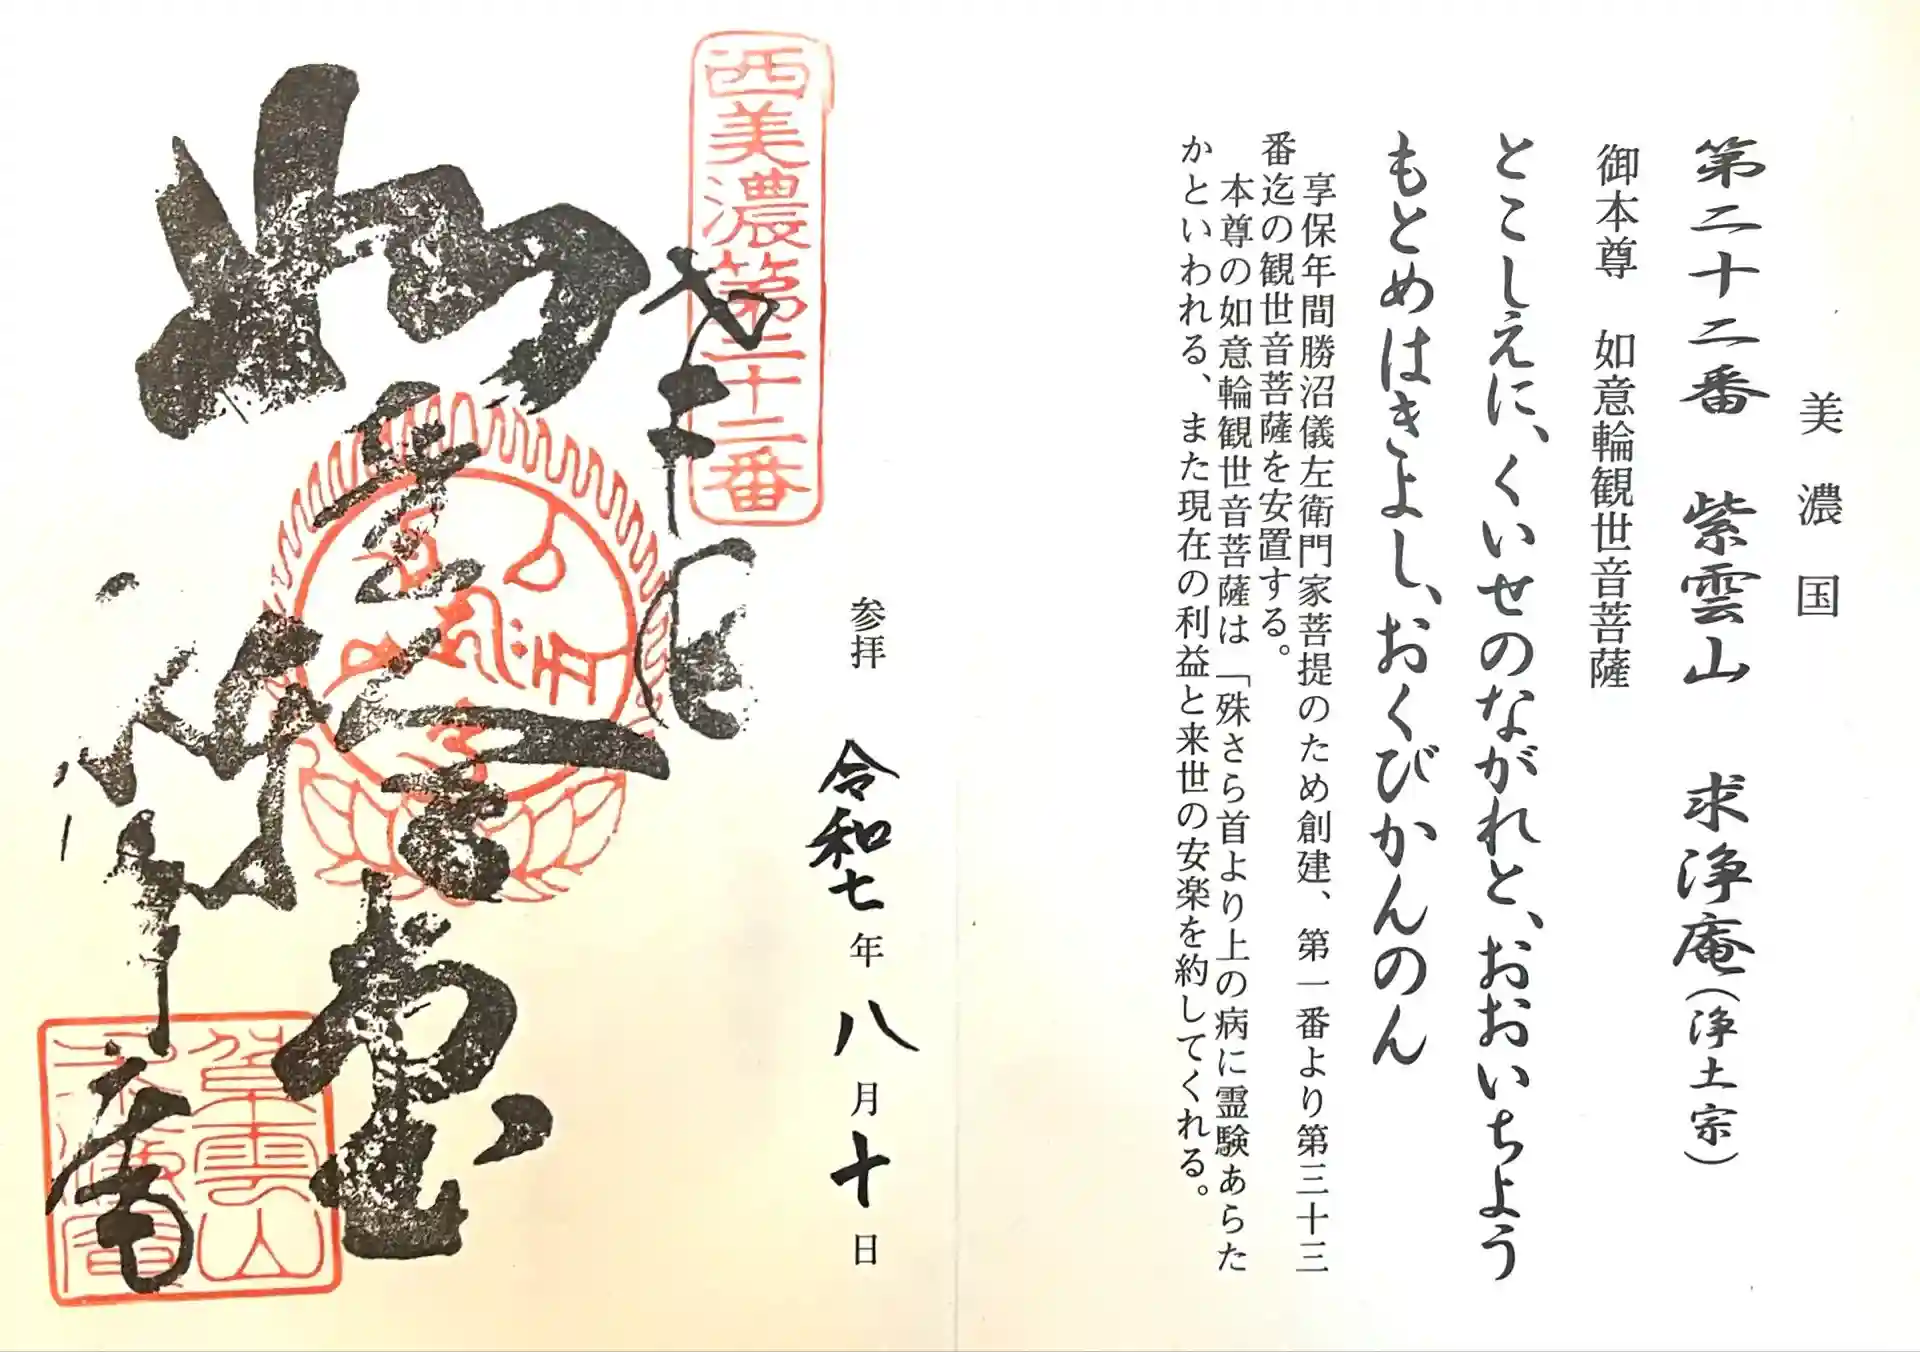 美濃国
第二十二番 紫雲山 求浄庵(浄土宗)
御本尊 如意輪観世音菩薩
とこしえに、くいせのながれと、おおいちよう
もとめはきよし、おくびかんのん
享保年間勝沼儀左衛門家菩提のため創建、第一番より第三十三
番迄の観世音菩薩を安置する。
本尊の如意輪観世音菩薩は「殊さら首より上の病に霊験あらた
かといわれる、また現在の利益と来世の安楽を約してくれる。
参拝 令和七年八月十日
西美濃第二十二番
奉拝
紫雲山